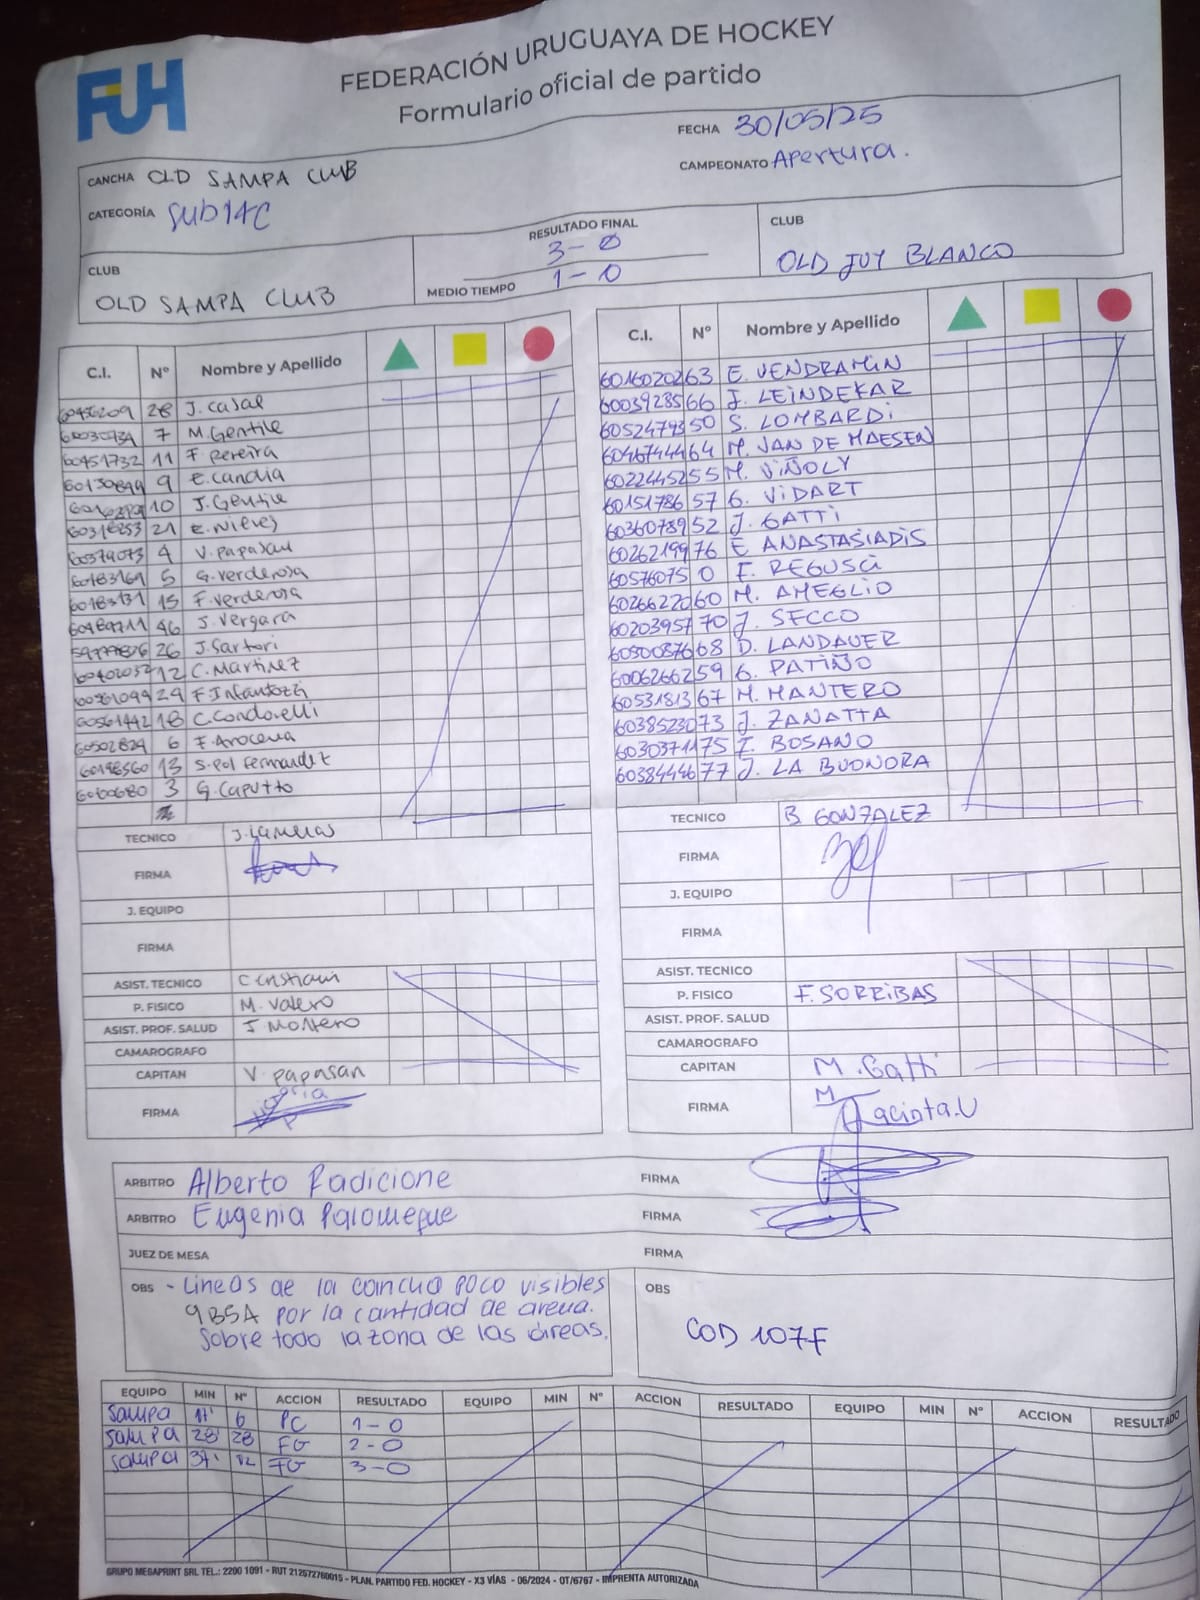 FUH
FEDERACIÓN URUGUAYA DE HOCKEY
Formulario oficial de partido
FECHA 30/05/25
CAMPEONATO Apertura.
CANCHA OLD SAMPA CLUB
CATEGORÍA SUB14C
CLUB
OLD SAMPA CLUB
RESULTADO FINAL
3-0
MEDIO TIEMPO 1-0
CLUB
OLD JUY BLANCO
C.I. Nº Nombre y Apellido
60456209 28 J. Casal
7 M. Gentile
60451732 11 F. Pereira
60130899 9 E. Candia
10 J. Gentile
60318253 21 E. Nieves
60379073 4 V. Papasan
60183169 5 G. Verderosa
60183131 15 F. Verderosa
60489711 46 J. Vergara
26 J. Sartori
60402057 12 C. Martinez
60361099 29 F. Infantozzi
60561442 18 C. Condorelli
60502829 6 F. Arocena
60198560 13 S. Pol Fernandez
3 G. Caputto
TECNICO
FIRMA
J. EQUIPO
FIRMA
ASIST. TECNICO Cristhian
P. FISICO M. Valero
ASIST. PROF. SALUD J Montero
CAMAROGRAFO
CAPITAN V. papasan
FIRMA
C.I. Nº Nombre y Apellido
60160202 63 E. VENDRAMIN
60039285 66 J. LEINDEKAR
60524793 50 S. LOMBARDI
60467444 64 M. VAN DE MAESEN
60224452 55 M. VIÑOLY
60151786 57 G. VIDART
60360789 52 J. GATTI
60262199 76 E ANASTASIADIS
60576075 0 F. REGUSCI
60266220 60 M. AMEGLIO
60203957 70 J. SECCO
60300876 68 D. LANDAUER
60062662 59 G. PATIÑO
60531813 67 M. MANTERO
60385230 73 J. ZANATTA
60303711 75 I. BOSANO
60384446 77 J. LA BUONORA
TECNICO B. GONZALEZ
FIRMA
J. EQUIPO
FIRMA
ASIST. TECNICO
P. FISICO F. SORRIBAS
ASIST. PROF. SALUD
CAMAROGRAFO
CAPITAN M. Gatti
FIRMA Jacinta.U
ARBITRO Alberto Radicione FIRMA
ARBITRO Eugenia Palomeque FIRMA
JUEZ DE MESA FIRMA
OBS - Lineas de la cancha poco visibles
9B5A por la cantidad de arena.
Sobre todo la zona de las áreas.
OBS
COD 107F
EQUIPO MIN Nº ACCION RESULTADO EQUIPO MIN Nº ACCION RESULTADO EQUIPO MIN Nº ACCION RESULTADO
Sampa 6 PC 1-0
Sampa 28' 28 FG 2-0
Sampa 37' 12 FG 3-0
GRUPO MEGAPRINT SRL TEL.: 2200 1091 - RUT 212572760015 - PLAN. PARTIDO FED. HOCKEY - X3 VÍAS - 06/2024 - OT/6767 - IMPRENTA AUTORIZADA